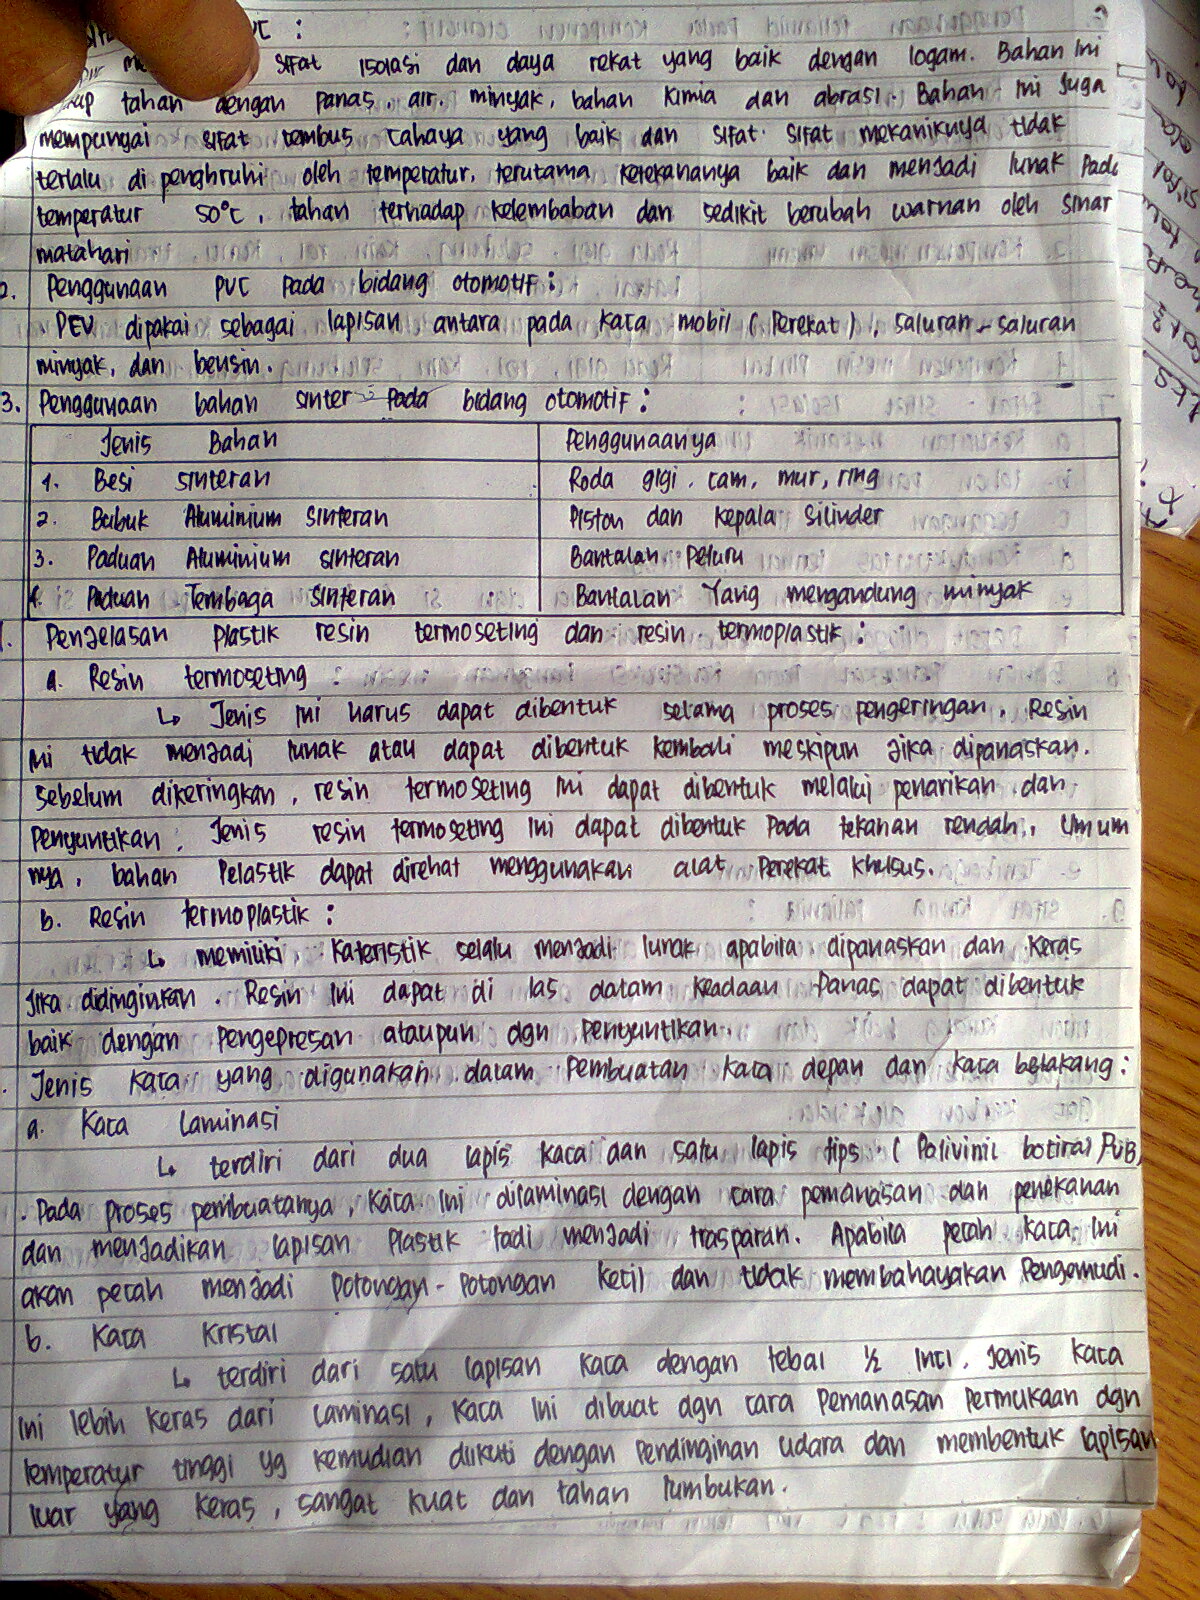 sifat isolasi dan daya rekat yang baik dengan logam. Bahan ini
tahan dengan panas, air, minyak, bahan kimia dan abrasi. Bahan ini juga
mempunyai sifat tembus cahaya yang baik dan sifat-sifat mekaniknya tidak
terlalu di penghruhi oleh temperatur, terutama kelekananya baik dan menjadi lunak pada
temperatur 50°C, tahan terhadap kelembaban dan sedikit berubah warnan oleh sinar
matahari
2. Penggunaan PVC pada bidang otomotif :
PEV dipakai sebagai lapisan antara pada kaca mobil (Perekat), saluran-saluran
minyak, dan bensin.
3. Penggunaan bahan sinter pada bidang otomotif :
Jenis Bahan Penggunaanya
1. Besi sinteran Roda gigi, cam, mur, ring
2. Bubuk Aluminium sinteran Piston dan Kepala Silinder
3. Paduan Aluminium sinteran Bantalan Peluru
4. Paduan Tembaga sinteran Bantalan Yang mengandung minyak
Penjelasan plastik resin termoseting dan resin termoplastik :
a. Resin termoseting :
↳ Jenis ini harus dapat dibentuk selama proses pengeringan. Resin
ini tidak menjadi lunak atau dapat dibentuk kembali meskipun jika dipanaskan.
Sebelum dikeringkan, resin termoseting ini dapat dibentuk melalui penarikan dan
Penyuntikan. Jenis resin termoseting ini dapat dibentuk pada tekanan rendah. Umum
nya, bahan Pelastik dapat direhat menggunakan alat Perekat khusus.
b. Resin termoplastik :
↳ memiliki kateristik selalu menjadi lunak apabila dipanaskan dan keras
jika didinginkan. Resin ini dapat di las dalam keadaan panas, dapat dibentuk
baik dengan Pengepresan ataupun dgn penyuntikan.
Jenis kaca yang digunakan dalam Pembuatan kaca depan dan kaca belakang :
a. Kaca Laminasi
↳ terdiri dari dua lapis kaca dan satu lapis tips (Polivinil botiral PVB)
. Pada proses pembuatanya, kaca ini dilaminasi dengan cara pemanasan dan penekanan
dan menjadikan lapisan Plastik tadi menjadi trasparan. Apabila pecah kaca ini
akan pecah menjadi potongan-potongan kecil dan tidak membahayakan Pengemudi.
b. Kaca Kristal
↳ terdiri dari satu lapisan kaca dengan tebal ½ inci. Jenis kaca
ini lebih keras dari laminasi, kaca ini dibuat dgn cara Pemanasan Permukaan dgn
temperatur tinggi yg kemudian diikuti dengan Pendinginan udara dan membentuk lapisan
luar yang keras, sangat kuat dan tahan tumbukan.